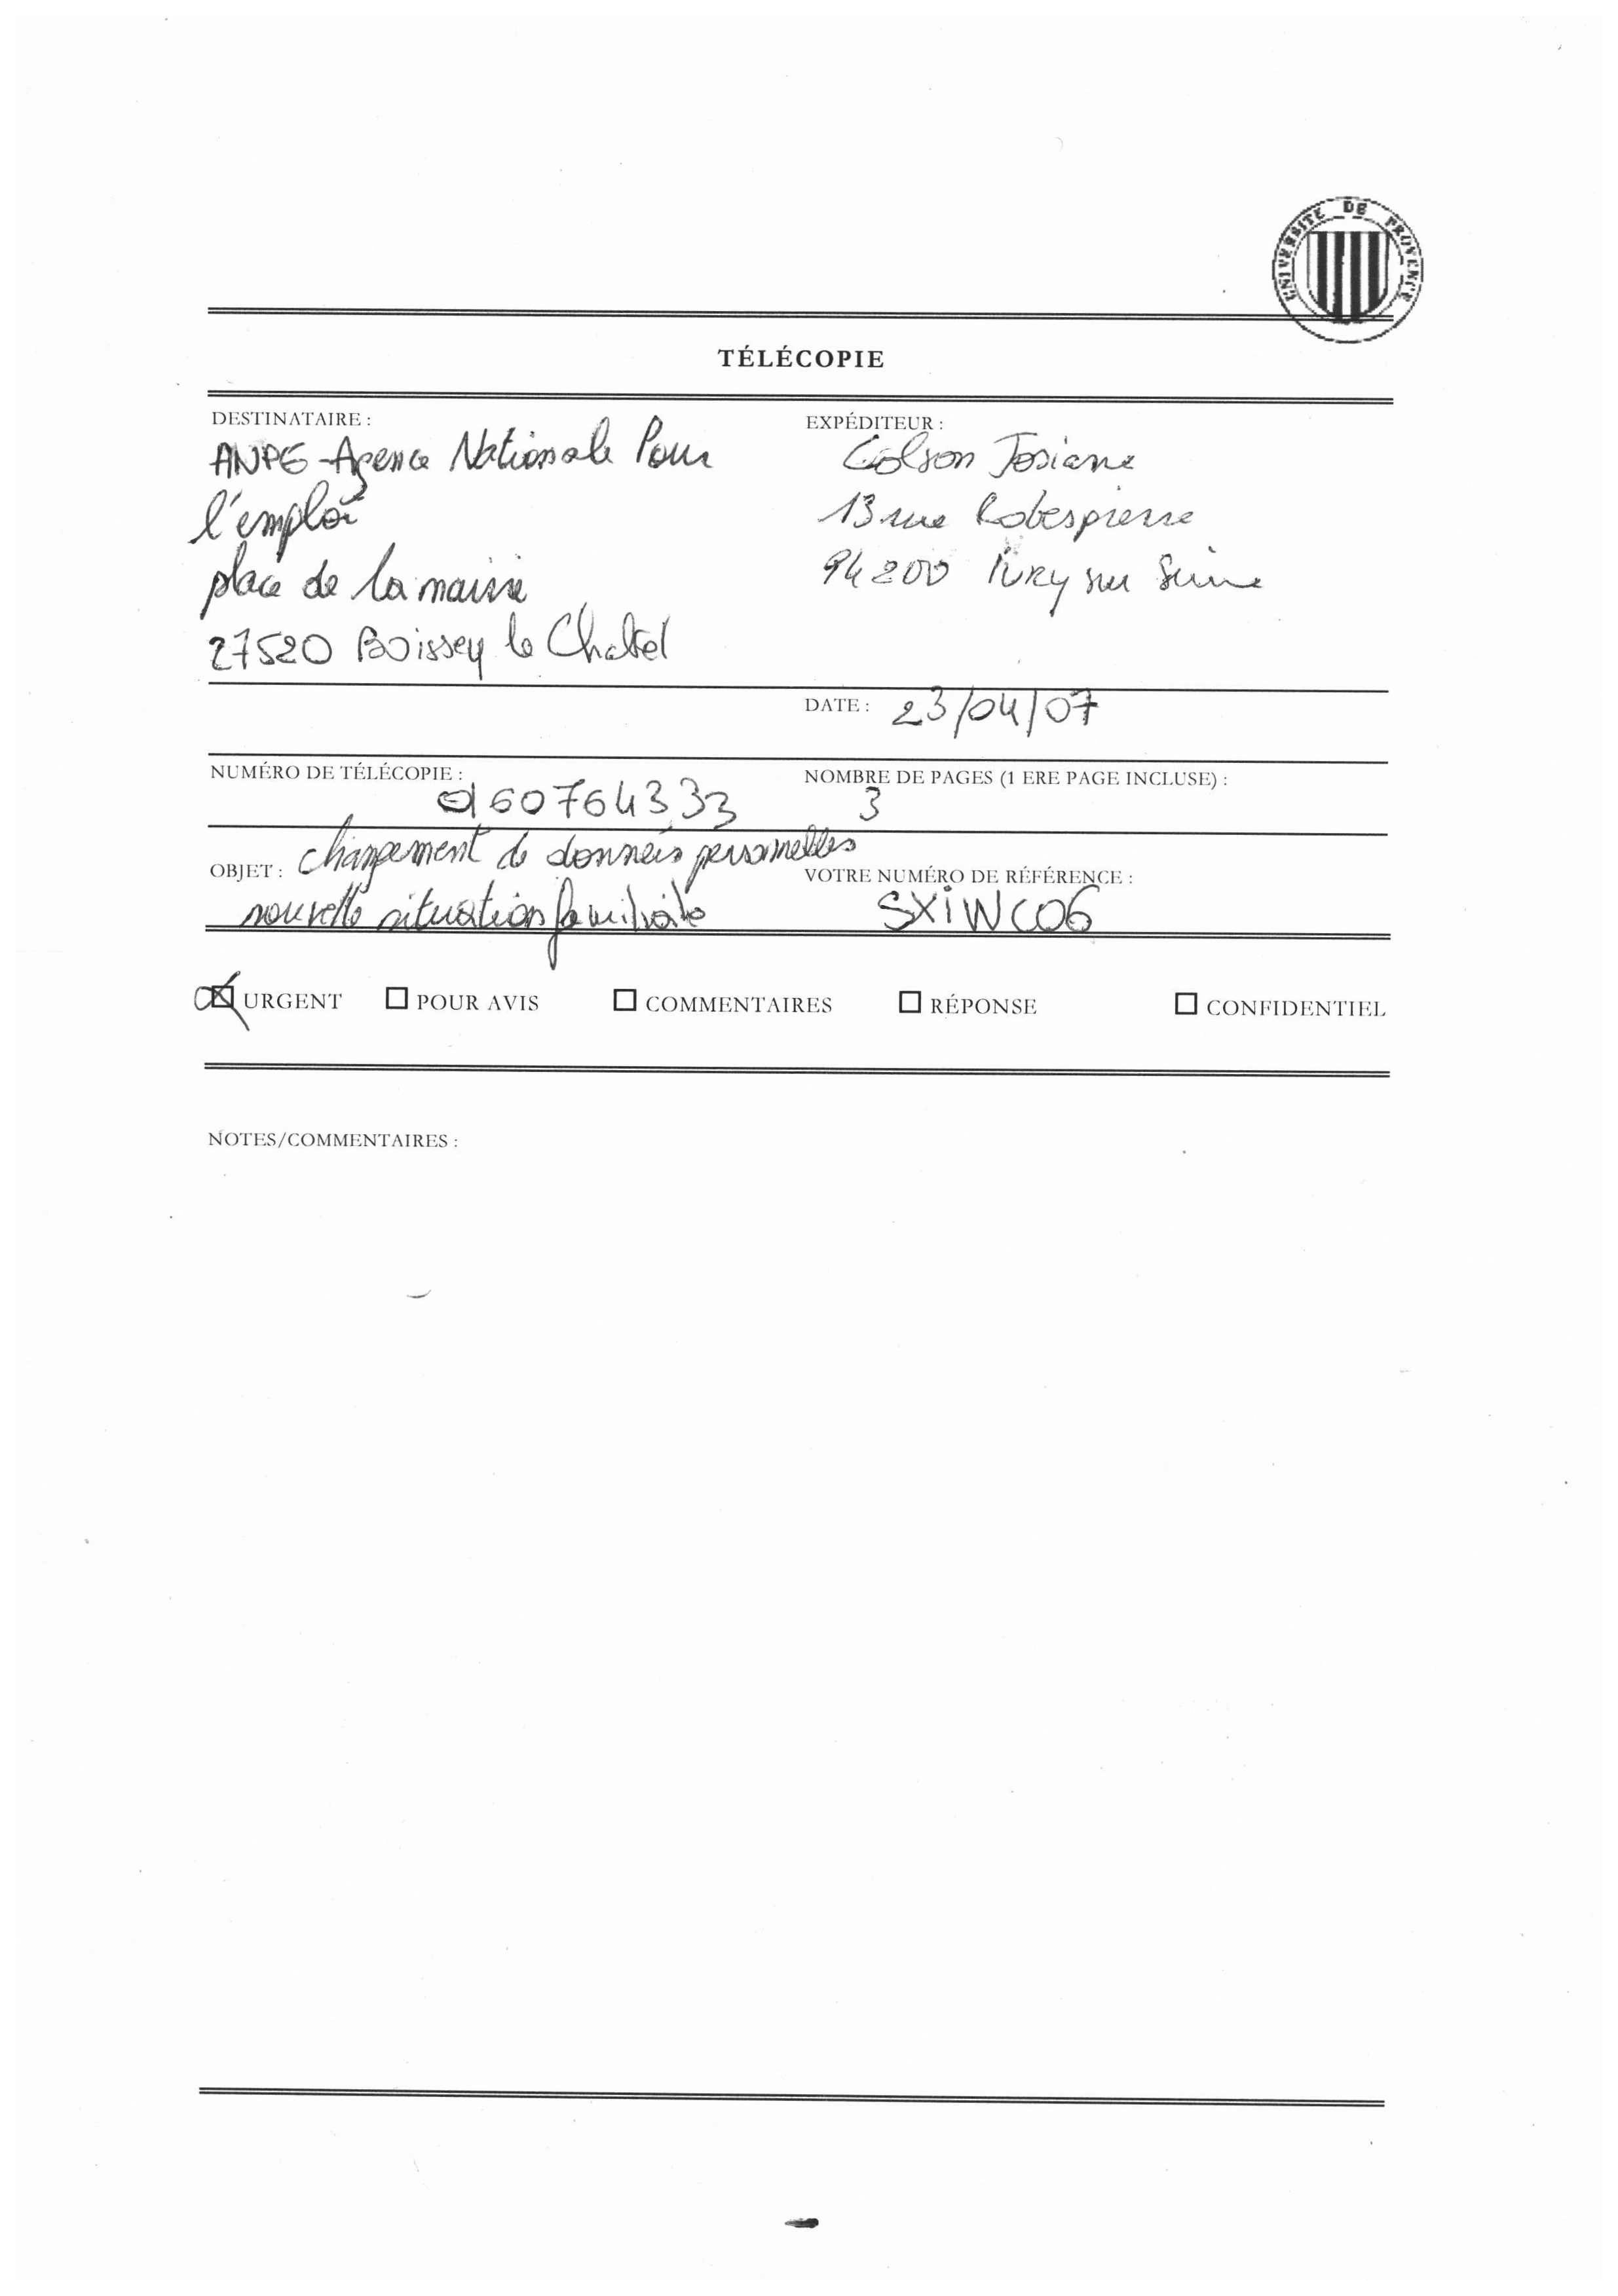 UNIVERSITE DE PROVENCE
TÉLÉCOPIE
DESTINATAIRE :
ANPE - Agence Nationale Pour
l'emploi
place de la mairie
27520 Boissey le Chatel
EXPÉDITEUR :
Colson Josiane
13 rue Robespierre
94200 IVRY sur Seine
DATE : 23/04/07
NUMÉRO DE TÉLÉCOPIE :
0160764333
NOMBRE DE PAGES (1 ERE PAGE INCLUSE) :
3
OBJET : changement de données personnelles
nouvelle situation familiale
VOTRE NUMÉRO DE RÉFÉRENCE :
SXIWC06
URGENT POUR AVIS COMMENTAIRES RÉPONSE CONFIDENTIEL
NOTES/COMMENTAIRES :